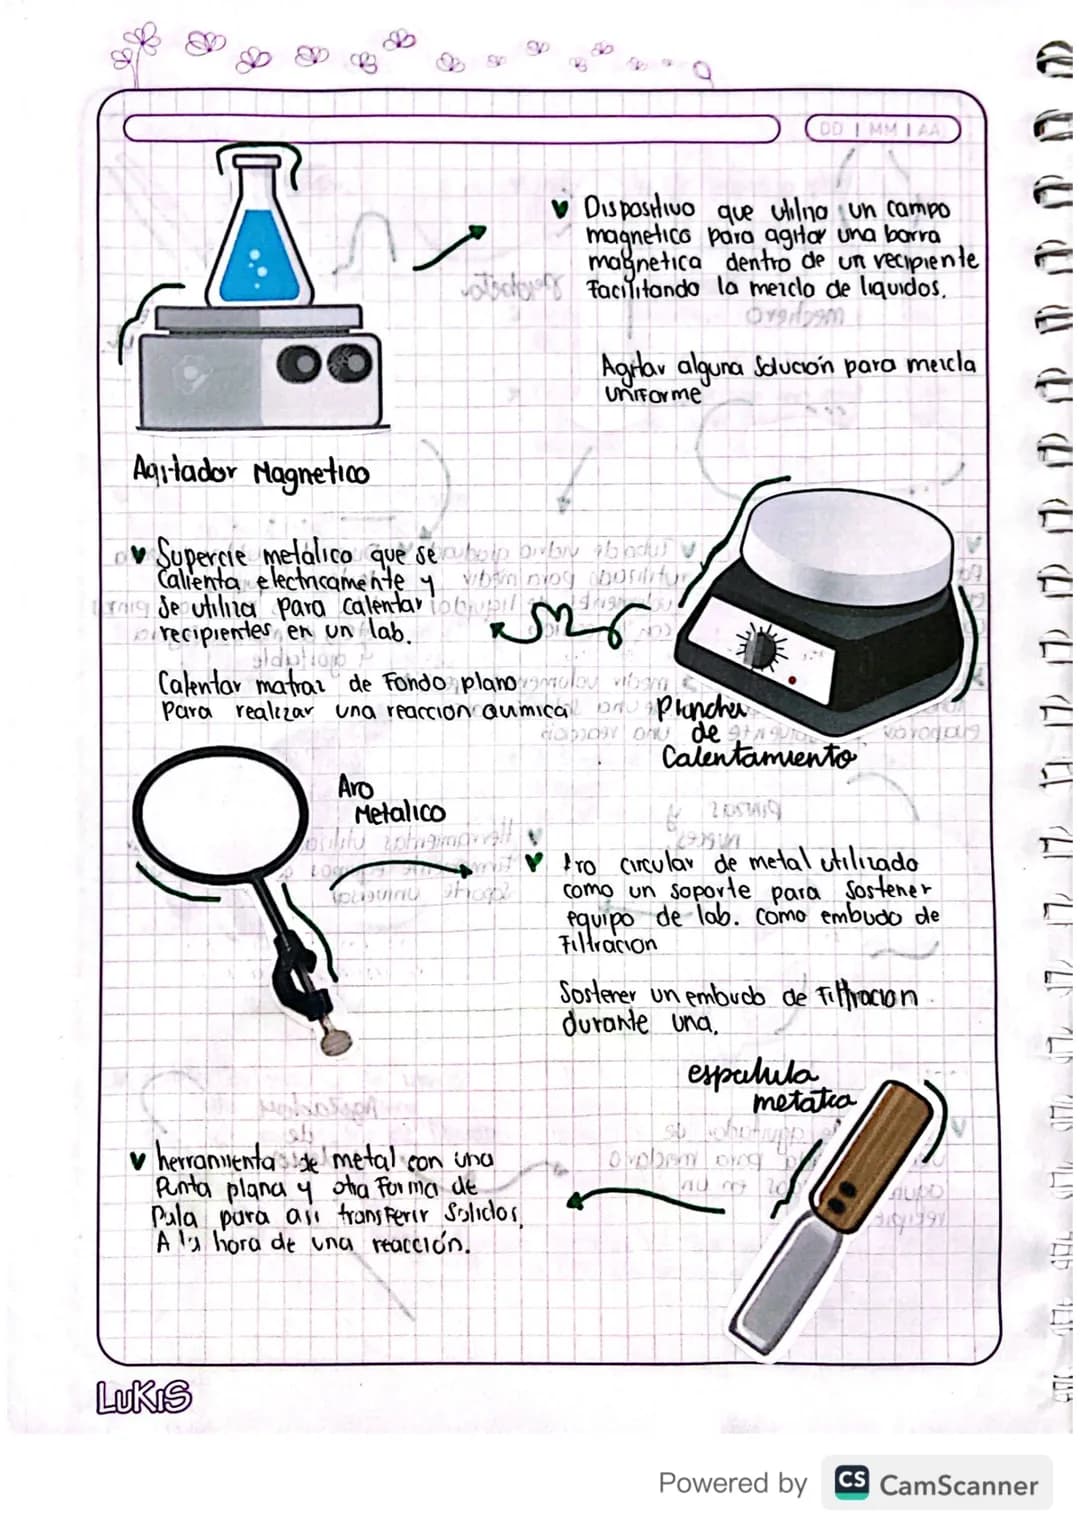 DD | MM | AA
Dispositivo que utiliza un campo
magnetico para agitar una barra
magnetica dentro de un recipiente
Facilitando la mezcla de liquidos.
Agitar alguna Solución para mezcla
uniforme
Agitador Magnetico
Supercie metálico que se
Calienta electricamente y
Se utiliza para calentar
recipientes en un lab.
Calentar matraz de Fondo plano
Para realizar una reaccion quimica
Plancha
de
Calentamiento
Aro
Metalico
Aro circular de metal utilizado
como un soporte para Sostener
equipo de lab. como embudo de
Filtracion
Sostener un embudo de Filtracion
durante una.
espatula
metatica
herramienta de metal con una
Punta plana y otra Forma de
Pala para asi transferir Solidos.
A la hora de una reacción.
LUKIS
Powered by CS CamScanner